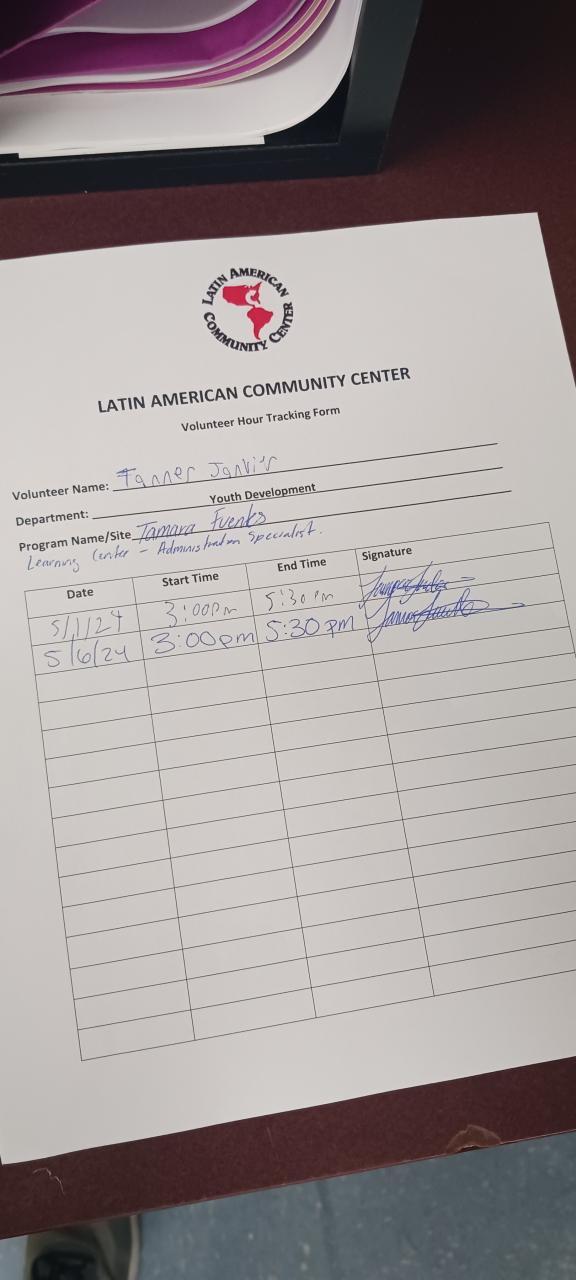 LATIN AMERICAN COMMUNITY CENTER
LATIN AMERICAN COMMUNITY CENTER
Volunteer Hour Tracking Form
Volunteer Name: Tanner Janvier
Department: Youth Development
Program Name/Site Tamara Fuenks
Learning Center - Administration Specialist.
Date Start Time End Time Signature
5/1/24 3:00pm 5:30 pm
5/6/24 3:00pm 5:30 pm